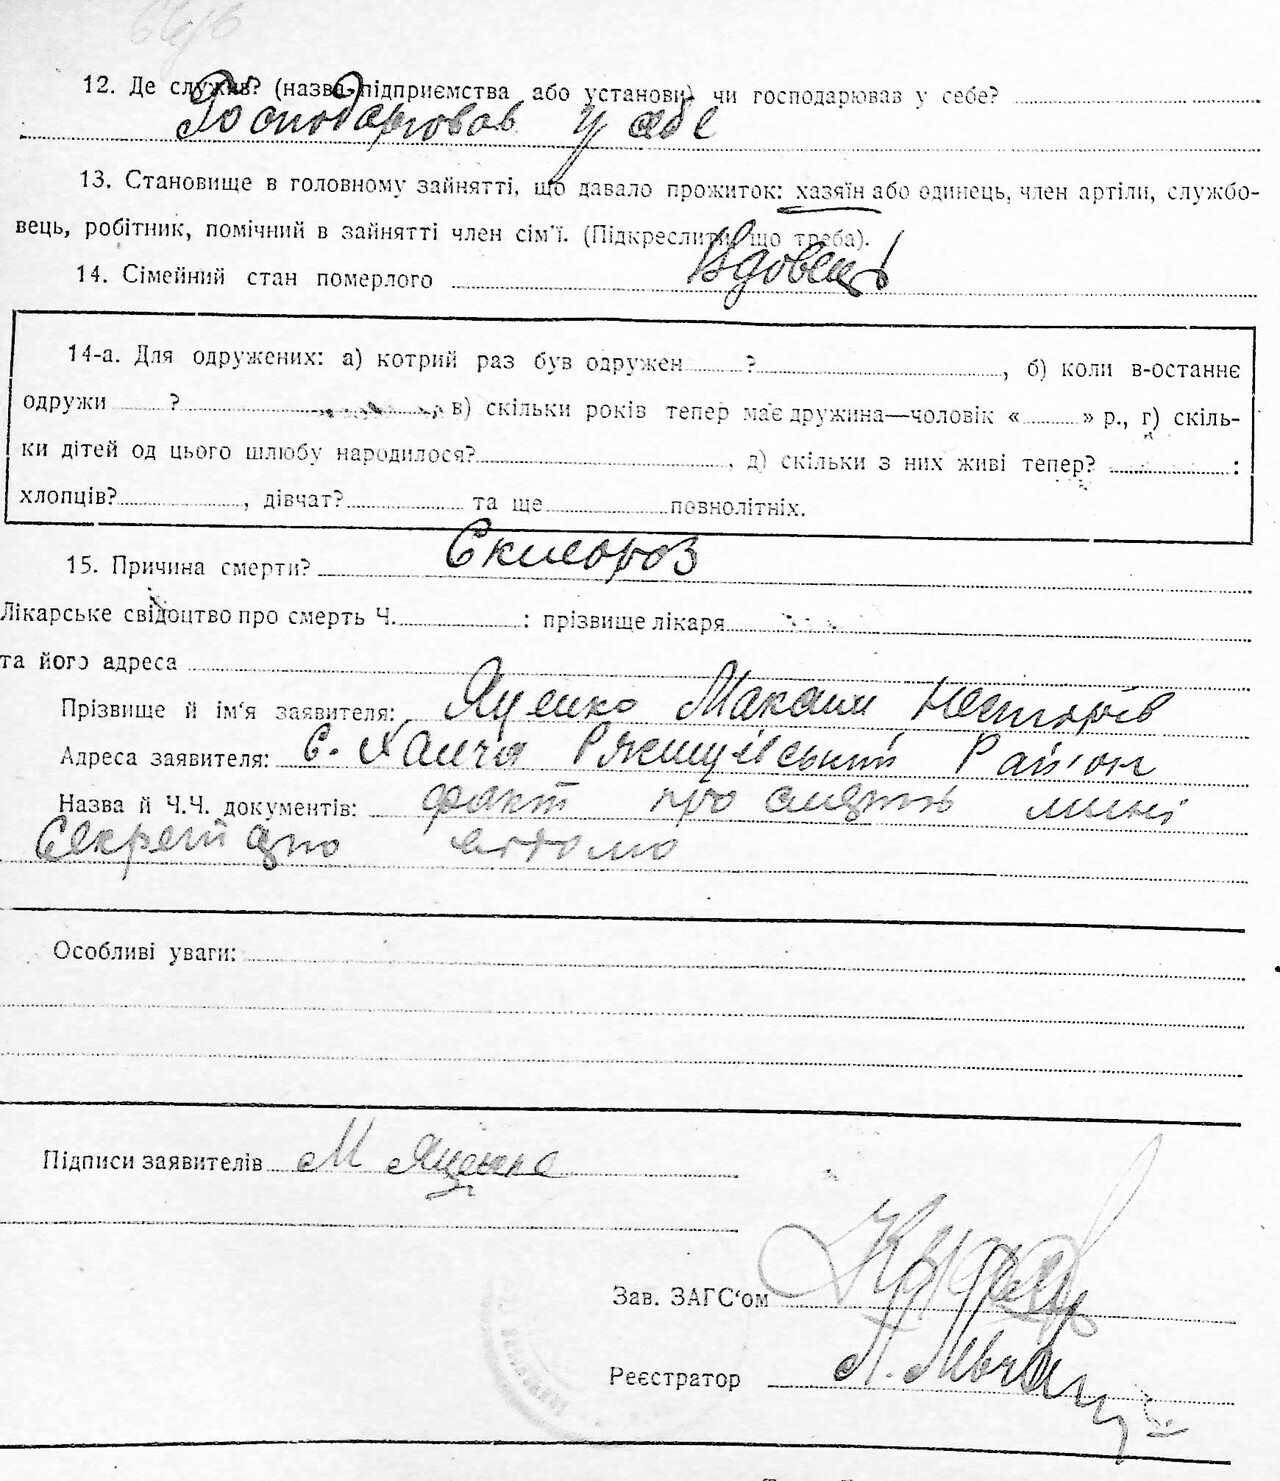 12. Де служив? (назва підприємства або установи) чи господарював у себе?
Господарював у себе
13. Становище в головному зайнятті, що давало прожиток: хазяїн або одинець, член артіли, службо-
вець, робітник, помічний в зайнятті член сім'ї. (Підкреслити, що треба).
14. Сімейний стан померлого Вдовець
14-а. Для одружених: а) котрий раз був одружен ? , б) коли в-останнє
одружи ? в) скільки років тепер має дружина—чоловік « » р., г) скіль-
ки дітей од цього шлюбу народилося? , д) скільки з них живі тепер? :
хлопців? , дівчат? та ще повнолітніх.
15. Причина смерти? Склероз
Лікарське свідоцтво про смерть Ч. : прізвище лікаря
та його адреса
Прізвище й ім'я заявителя: Яценко Максим Несторів
Адреса заявителя: с. Халча Ржищівський Район
Назва й Ч.Ч. документів: факт про смерть мині
Секретарю відомо
Особливі уваги:
Підписи заявителів М Яценко
Зав. ЗАГС'ом
Реєстратор